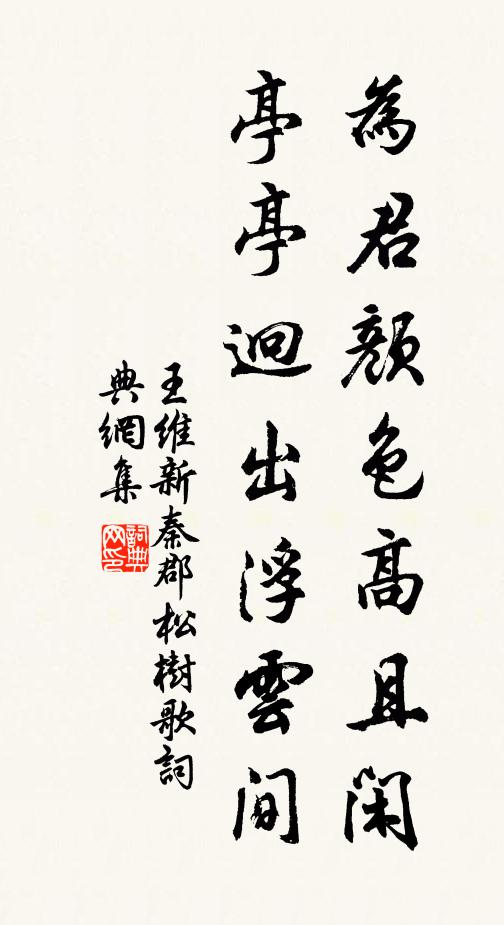 為君顔色高且閑
亭亭迥出浮雲間
王維新秦郡松樹歌詞
典網集
詞典網印